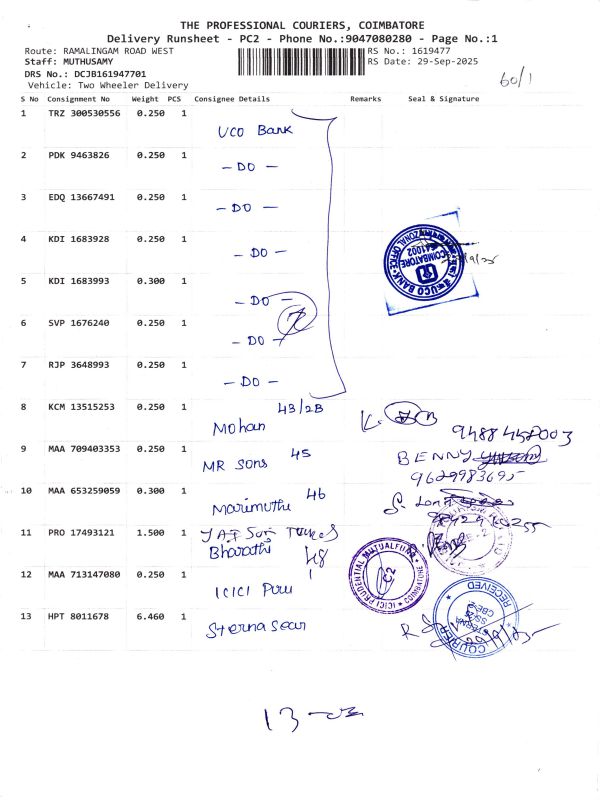 THE PROFESSIONAL COURIERS, COIMBATORE
Delivery Runsheet - PC2 - Phone No.:9047080280 - Page No.:1
Route: RAMALINGAM ROAD WEST
RS No.: 1619477
Staff: MUTHUSAMY
RS Date: 29-Sep-2025
DRS No.: DCJB161947701
Vehicle: Two Wheeler Delivery
60/1
S No Consignment No Weight PCS Consignee Details Remarks Seal & Signature
1 TRZ 300530556 0.250 1 UCO Bank
2 PDK 9463826 0.250 1 - DO -
3 EDQ 13667491 0.250 1 - DO -
4 KDI 1683928 0.250 1 - DO -
UCO BANK
ZONAL OFFICE
COIMBATORE
641002
5 KDI 1683993 0.300 1 - DO -
7
6 SVP 1676240 0.250 1 - DO -
7 RJP 3648993 0.250 1 - DO -
8 KCM 13515253 0.250 1 Mohan 43/2B
9488452003
9 MAA 709403353 0.250 1 MR Sons 45 BENNY
9629983695
10 MAA 653259059 0.300 1 Marimuthu 46
11 PRO 17493121 1.500 1
Bharathi 48
12 MAA 713147080 0.250 1 ICICI Pru
ICICI PRUDENTIAL MUTUAL FUND
COIMBATORE
C2
13 HPT 8011678 6.460 1
RECEIVED
COURIER
CBE-2
13